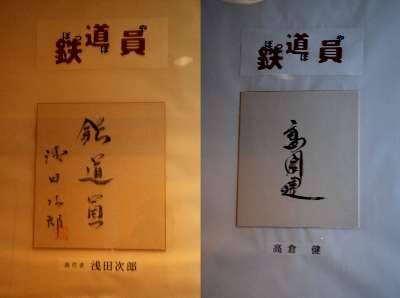 鉄道員
ぽっぽや
鉄道員
浅田次郎
原作者 浅田次郎
鉄道員
ぽっぽや
高倉健
高倉 健